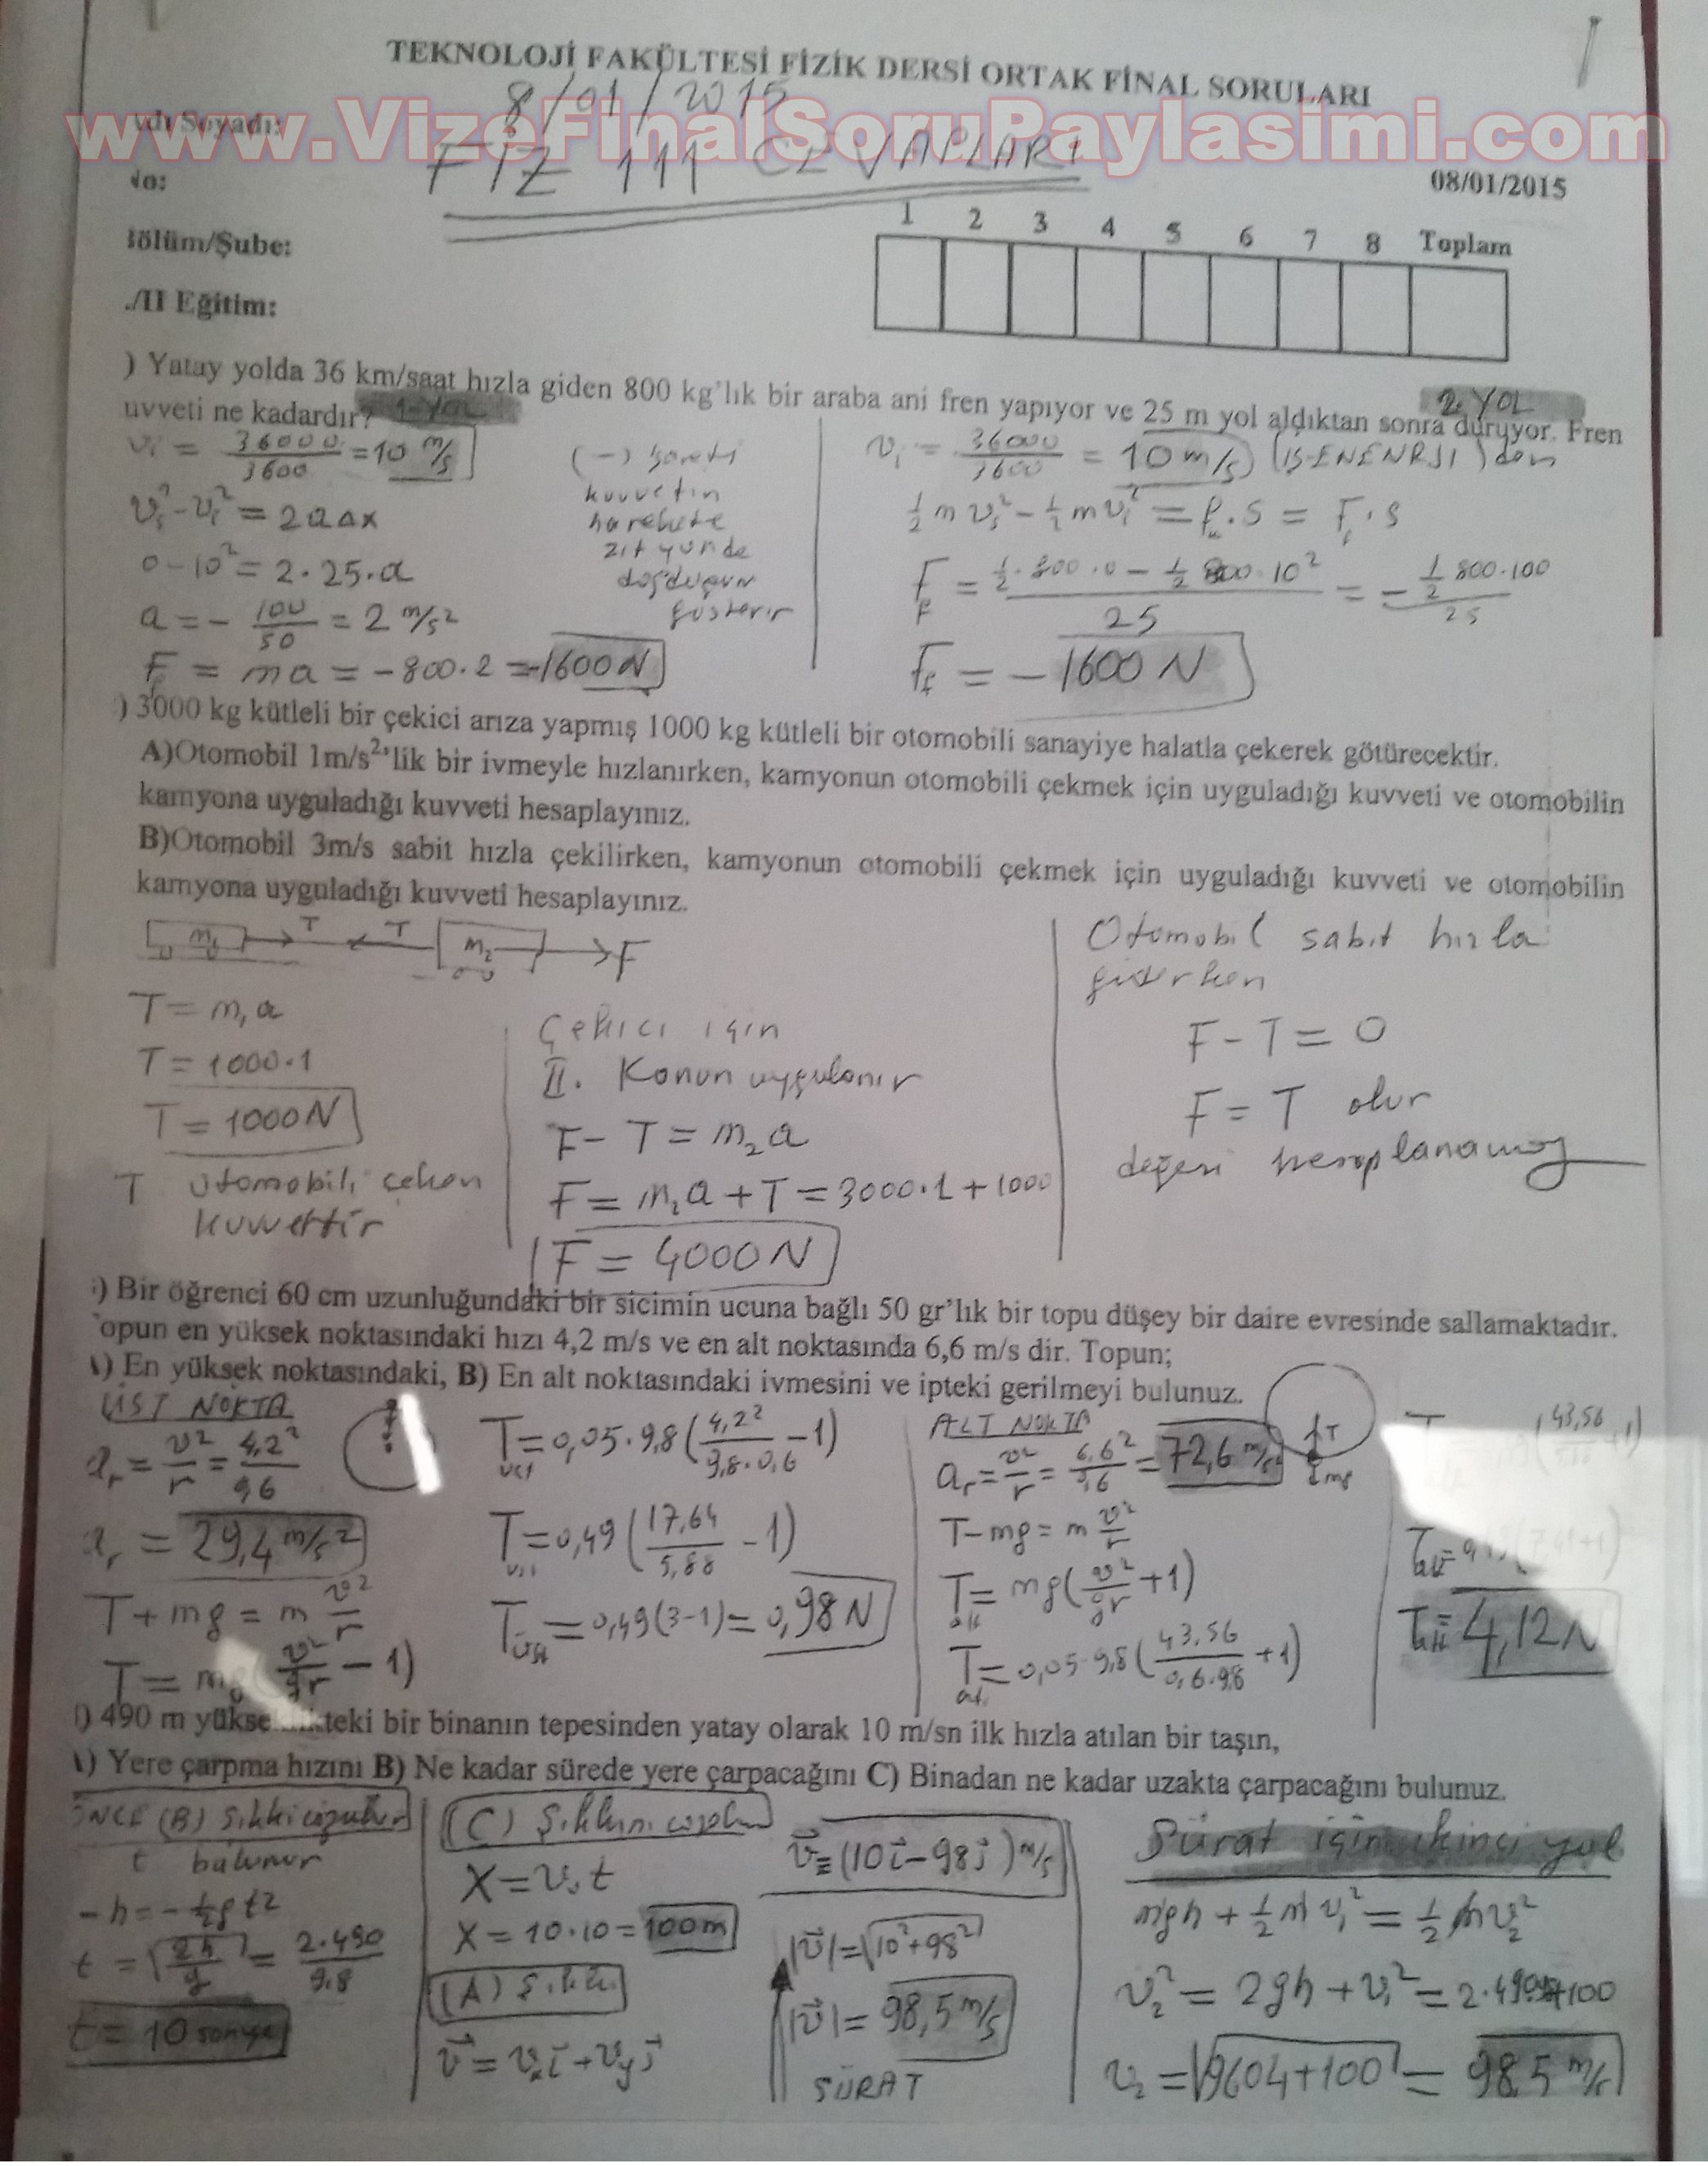 TEKNOLOJİ FAKÜLTESİ FİZİK DERSİ ORTAK FİNAL SORULARI
8/01/2015
www.VizeFinalSoruPaylasimi.com
dı Soyadı:
FİZ 111 CEVAPLARI
No:
08/01/2015
Bölüm/Şube:
1 2 3 4 5 6 7 8 Toplam
./II Eğitim:
) Yatay yolda 36 km/saat hızla giden 800 kg'lık bir araba ani fren yapıyor ve 25 m yol aldıktan sonra duruyor. Fren
uvveti ne kadardır? 1-YOL
2. YOL
vi = 36000/3600 = 10 m/s
vs² - vi² = 2aΔx
0 - 10² = 2·25·a
a = - 100/50 = 2 m/s²
Ff = ma = -800·2 = -1600N
(-) işareti
kuvvetin
harekete
zıt yönde
gösterir
vi = 36000/3600 = 10 m/s (İŞ-ENENRJİ) den
½ m vs² - ½ m vi² = · S = Ff · S
Ff = (½·800·0 - ½ 800·10²)/25 = - (½ 800·100)/25
Ff = -1600 N
) 3000 kg kütleli bir çekici arıza yapmış 1000 kg kütleli bir otomobili sanayiye halatla çekerek götürecektir.
A)Otomobil 1m/s²'lik bir ivmeyle hızlanırken, kamyonun otomobili çekmek için uyguladığı kuvveti ve otomobilin
kamyona uyguladığı kuvveti hesaplayınız.
B)Otomobil 3m/s sabit hızla çekilirken, kamyonun otomobili çekmek için uyguladığı kuvveti ve otomobilin
kamyona uyguladığı kuvveti hesaplayınız.
m₁ T T m₂ F
T = m₁a
T = 1000·1
T = 1000N
T otomobili çeken
kuvvettir
Çekici için
II. Kanun uygulanır
F - T = m₂a
F = m₂a + T = 3000·1 + 1000
F = 4000N
Otomobil sabit hızla
giderken
F - T = 0
F = T olur
değeri hesaplanamaz
) Bir öğrenci 60 cm uzunluğundaki bir sicimin ucuna bağlı 50 gr'lık bir topu düşey bir daire evresinde sallamaktadır.
opun en yüksek noktasındaki hızı 4,2 m/s ve en alt noktasında 6,6 m/s dir. Topun;
) En yüksek noktasındaki, B) En alt noktasındaki ivmesini ve ipteki gerilmeyi bulunuz.
ÜST NOKTA
ar = v²/r = 4,2²/0,6
ar = 29,4 m/s²
T + mg = m v²/r
T = mg(v²/gr - 1)
Tüst = 0,05·9,8(4,2²/9,8·0,6 - 1)
Tüst = 0,49(17,64/5,88 - 1)
Tüst = 0,49(3-1) = 0,98N
ALT NOKTA
ar = v²/r = 6,6²/0,6 = 72,6 m/s²
T - mg = m v²/r
Talt = mg(v²/gr + 1)
Talt = 0,05·9,8(43,56/0,6·9,8 + 1)
T
mg
Talt = 4,12N
) 490 m yükseklikteki bir binanın tepesinden yatay olarak 10 m/sn ilk hızla atılan bir taşın,
) Yere çarpma hızını B) Ne kadar sürede yere çarpacağını C) Binadan ne kadar uzakta çarpacağını bulunuz.
ÖNCE (B) şıkkı çözülür
t bulunur
-h = -½gt²
t = √2h/g = 2·490/9,8
t = 10 saniye
(C) Şıkkını
X = v₀t
X = 10·10 = 100m
(A) Şıkkı
v = vₓi + vyj
v = (10i - 98j) m/s
|v| = √10² + 98²
|v| = 98,5 m/s
SÜRAT
Sürat için ikinci yol
mgh + ½ m v₁² = ½ m v₂²
v₂² = 2gh + v₁² =
v₂ = √9604+100 = 98,5 m/s